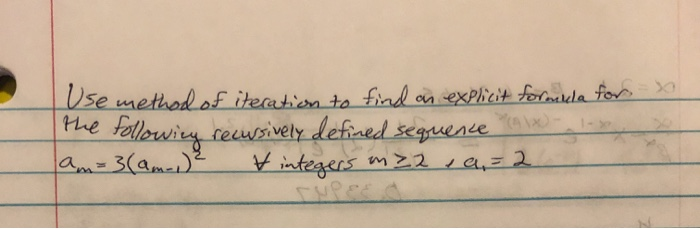 Use method of iteration to find an explicit formula for
the following recursively defined sequence
aₘ = 3(aₘ₋₁)² ∀ integers m ≥ 2 , a₁ = 2